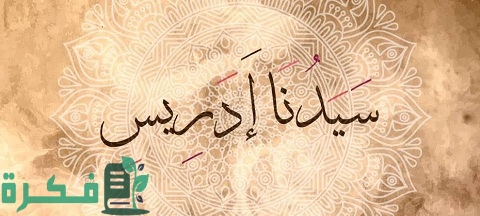 سَيَدُنَا إَدَرِيس
فكرة